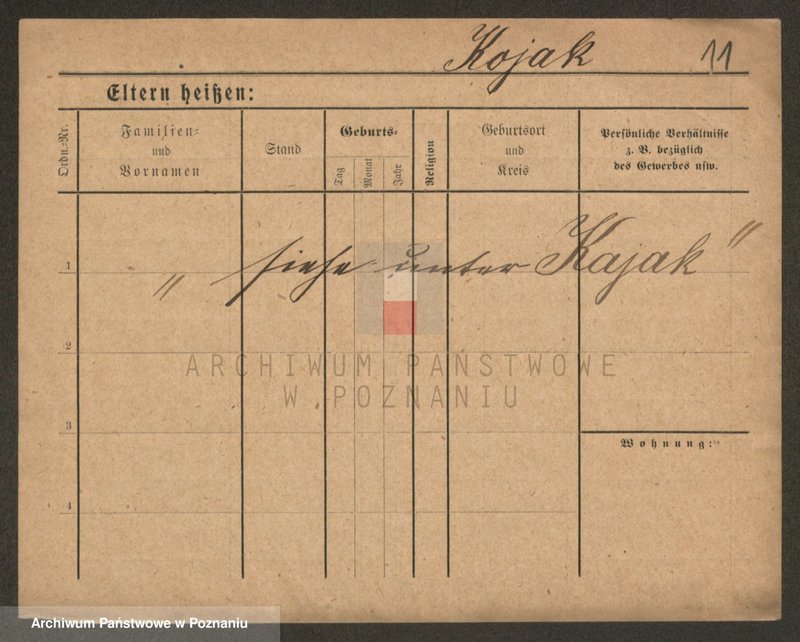 Kojak 11
Eltern heißen:
Ordn.=Nr.
Familien=
und
Vornamen
Stand
Geburts=
Tag
Monat
Jahr
Religion
Geburtsort
und
Kreis
Persönliche Verhältnisse
z. B. bezüglich
des Gewerbes usw.
1
" siehe unter Kajak "
2
ARCHIWUM PAŃSTWOWE
W POZNANIU
3
Wohnung:
4
Archiwum Państwowe w Poznaniu